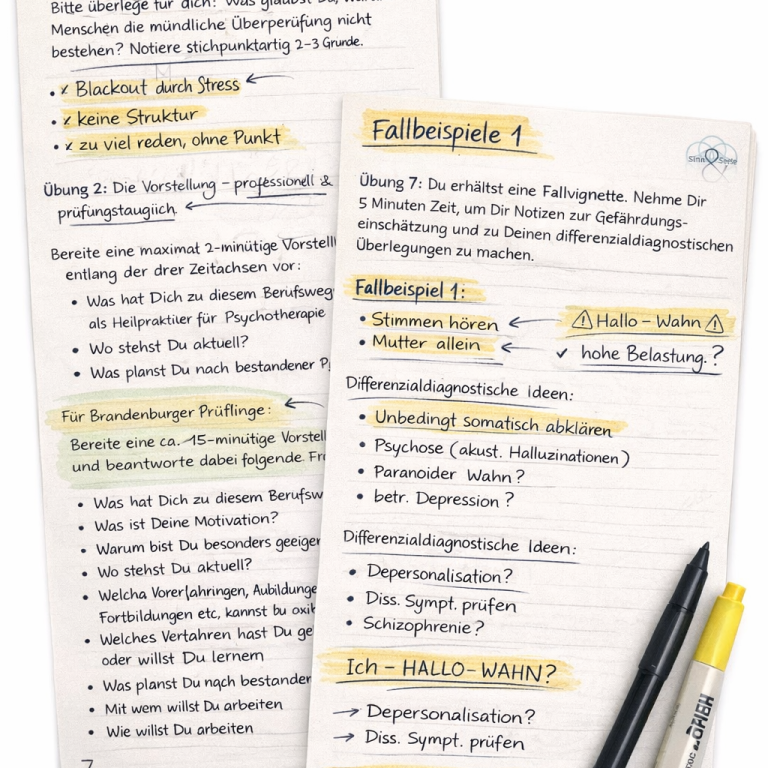 Bitte überlege für dich: Was glaubst Du,
Menschen die mündliche Überperüfung nicht
bestehen? Notiere stichpunktartig 2-3 Grunde.
• x Blackout durch Stress ←
• x keine Struktur
• x zu viel reden, ohne Punkt
Übung 2: Die Vorstellung – professionell &
prüfungstaugiich. ←
Bereite eine maximat 2-minütige Vorstell
entlang der drer Zeitachsen vor:
• Was hat Dich zu diesem Berufsweg
als Heilpraktier für Psychotherapie
• Wo stehst Du aktuell?
• Was planst Du nach bestandener P
Für Brandenburger Prüflinge: ←
Bereite eine ca. 15-minütige Vorstell
und beantworte dabei folgende Fr
• Was hat Dich zu diesem Berufsw
• Was ist Deine Motivation?
• Warum bist Du besonders geeiger
• Wo stehst Du aktuell?
• Welcha Vorerfahringen, Aubildunge
Fortbildungen etc, kannst bu
• Welches Vertahren hast Du ge
oder willst Du lernem
• Was planst Du nach bestander
• Mit wem willst Du arbeiten
• Wie willst Du arbeiten
7
Fallbeispiele 1
Sinn Seele
Übung 7: Du erhältst eine Fallvignette. Nehme Dir
5 Minuten Zeit, um Dir Notizen zur Gefährdungs-
einschätzung und zu Deinen differenzialdiagnostischen
Überlegungen zu machen.
Fallbeispiel 1:
• Stimmen hören ← ⚠ Hallo – Wahn ⚠
• Mutter allein ← ✓ hohe Belastung.?
Differenzialdiagnostische Ideen:
• Unbedingt somatisch abklären
• Psychose (akust. Halluzinationen)
• Paranoider Wahn?
• betr. Depression?
Differenzialdiagnostische Ideen:
• Depersonalisation?
• Diss. Sympt. prüfen
• Schizophrenie?
Ich – HALLO-WAHN?
→ Depersonalisation?
→ Diss. Sympt. prüfen